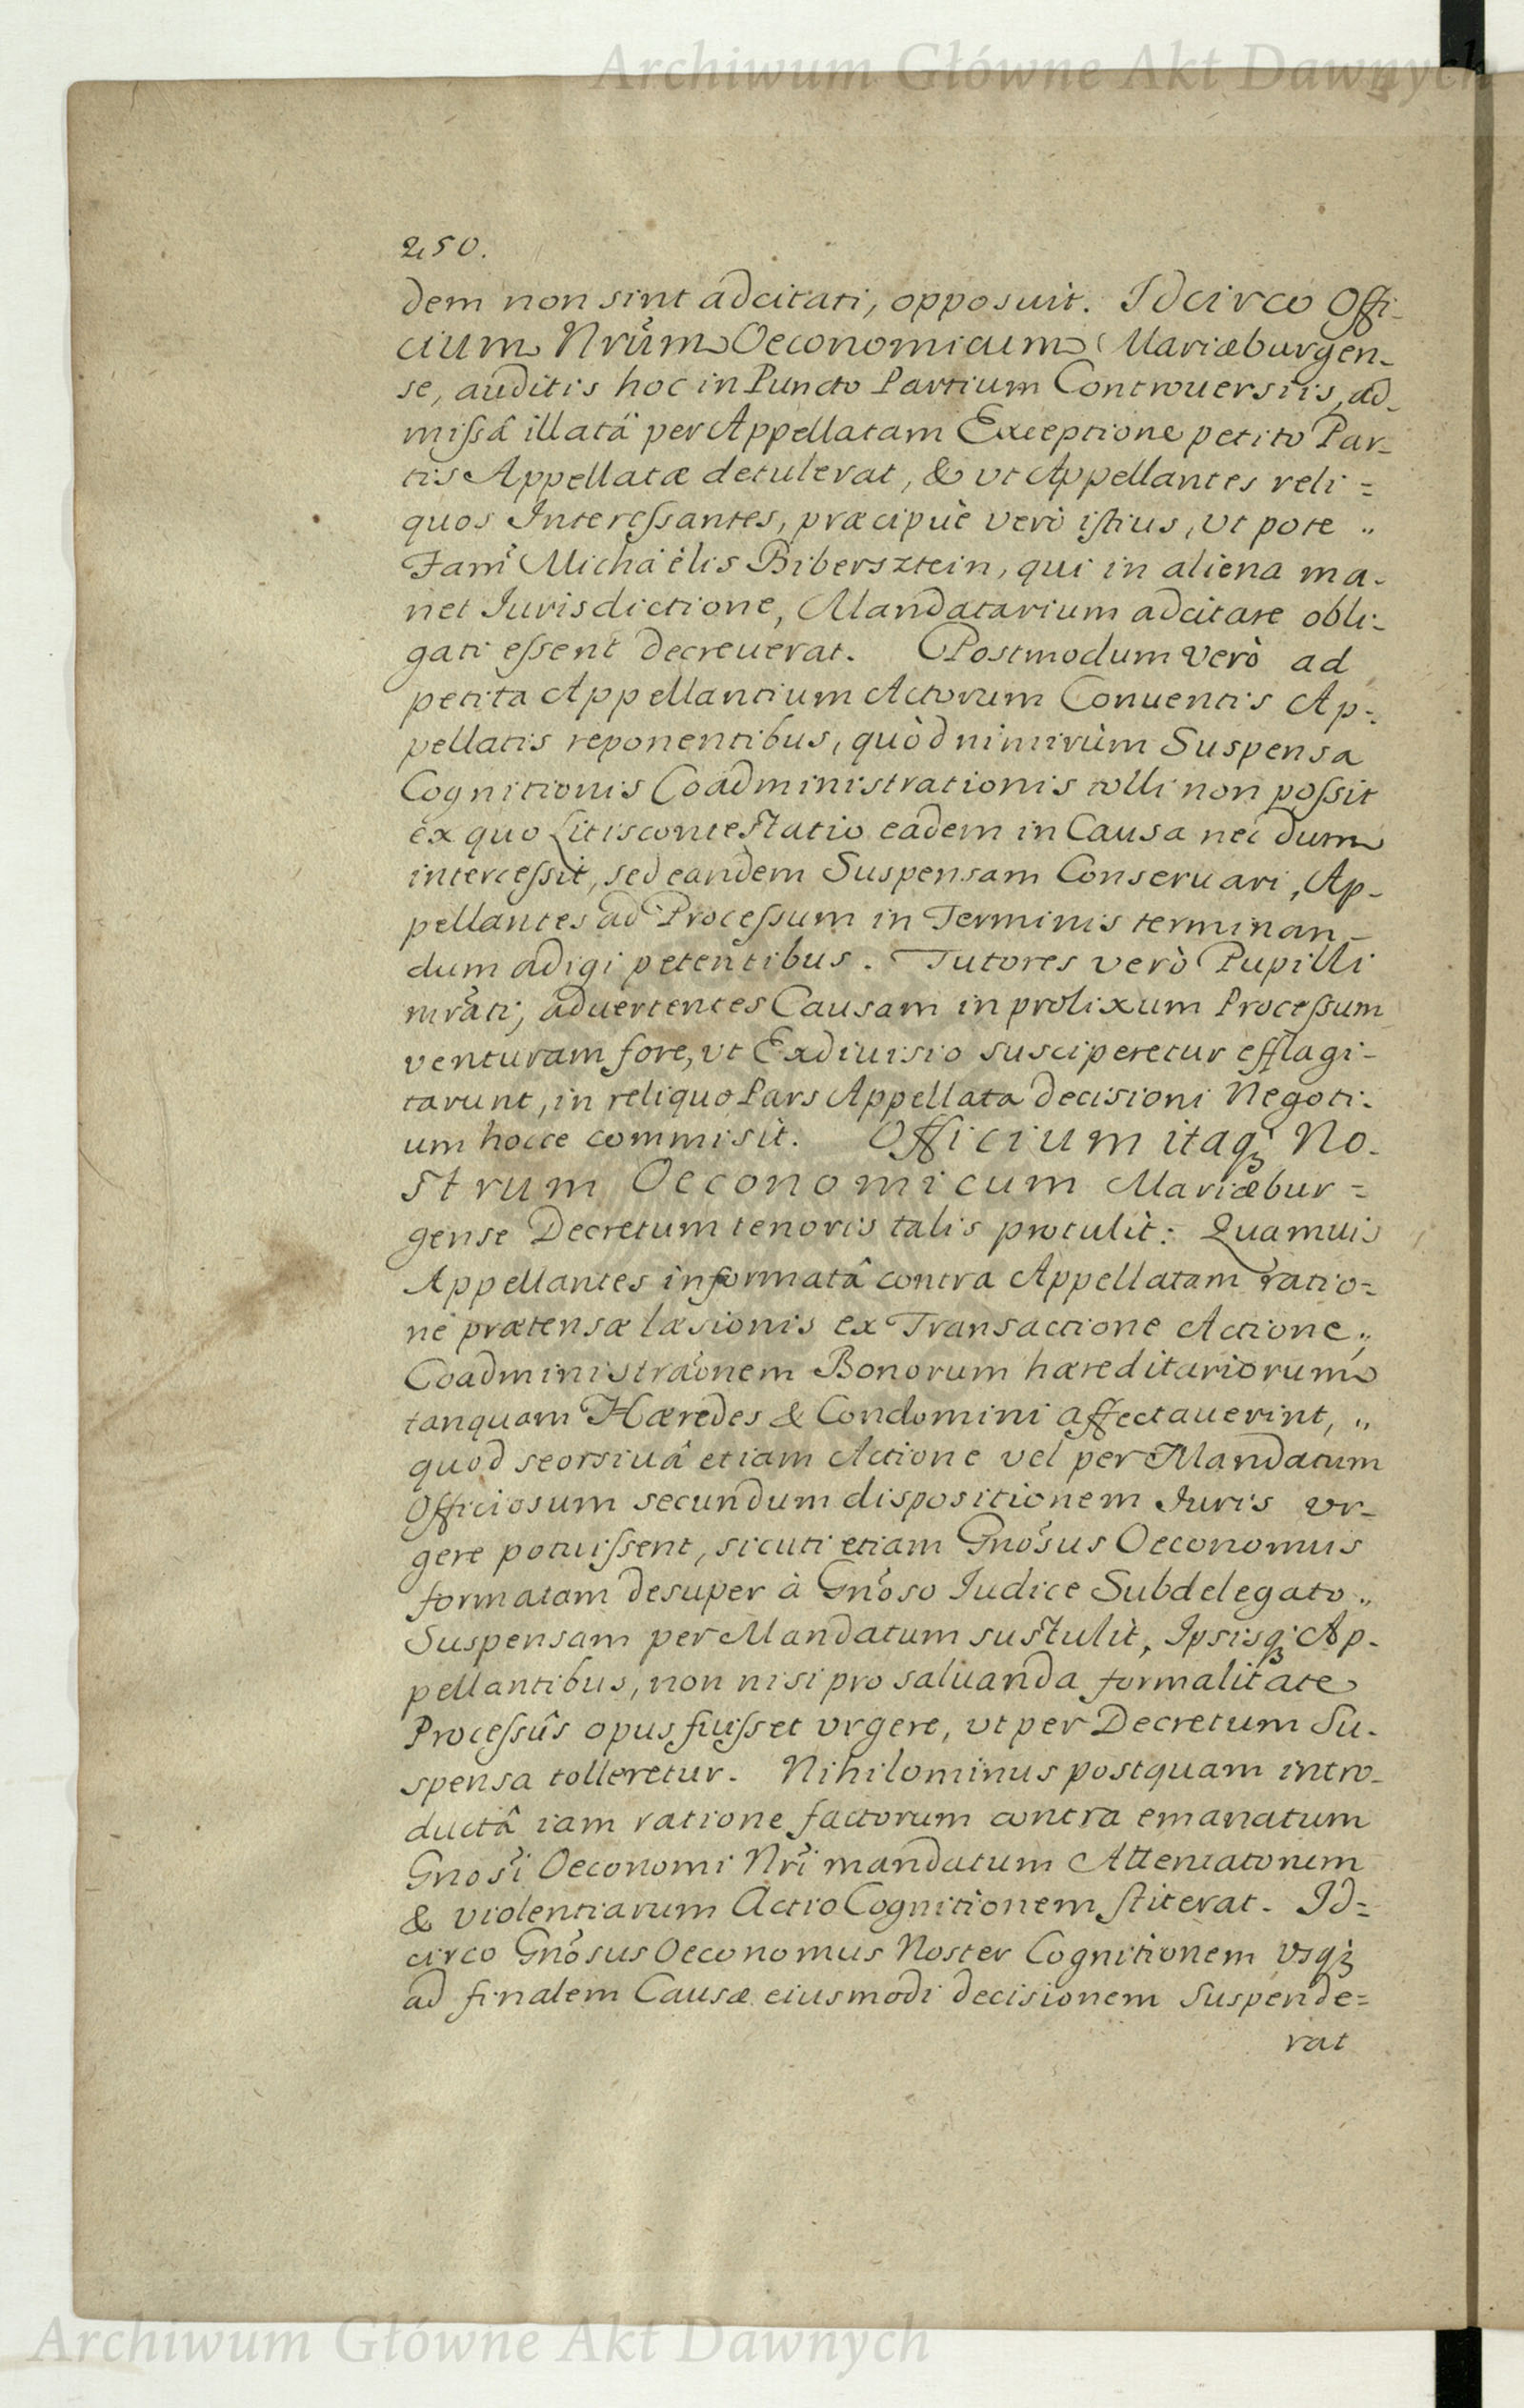 Archiwum Główne Akt Dawnych
250.
dem non sint adcitati, opposuit. Idcirco Offi-
cium Nrũm Oeconomicum Mariæburgen-
se, auditis hoc in Puncto Partium Controuersiis, ad-
missâ illatâ per Appellatam Exceptione petito Par-
tis Appellatæ detulerat, & vt Appellantes reli=
quos Interessantes, præcipuè verò istius, vt pote „
Fam̃ Michaëlis Bibersztein, qui in aliena ma-
net Iurisdictione, Mandatarium adcitare obli-
gati essent decreuerat. Postmodum verò ad
petita Appellantium Actorum Conuentis Ap-
pellatis reponentibus, quòd nimirùm Suspensa
Cognitionis Coadministrationis tolli non possit
ex quo Litiscontestatio eadem in Causa nec dum
intercessit, sed eandem Suspensam Conseruari, Ap-
pellantes ad Processum in Terminis terminan-
dum adigi petentibus. Tutores verò Pupilli
mrãti, aduertentes Causam in prolixum Processum
venturam fore, vt Exdiuisio susciperetur efflagi-
tarunt, in reliquo Pars Appellata decisioni Negoti-
um hocce commisit. Officium itaqꝫ No-
strum Oeconomicum Mariæbur=
gense Decretum tenoris talis protulit: Quamuis
Appellantes informatâ contra Appellatam ratio=
ne prætensæ læsionis ex Transactione Actione „
Coadministrãonem Bonorum hæreditariorum
tanquam Hæredes & Condomini affectauerint, „
quod seorsiuâ etiam Actione vel per Mandatum
Officiosum secundum dispositionem Iuris vr-
gere potuissent, sicuti etiam Gnõsus Oeconomus
formatam desuper à Gnõso Iudice Subdelegato „
Suspensam per Mandatum sustulit, Ipsisqꝫ Ap-
pellantibus, non nisi pro saluanda formalitate
Processûs opus fuisset vrgere, vt per Decretum Su-
spensa tolleretur. Nihilominus postquam intro-
ductâ iam ratione factorum contra emanatum
Gnosĩ Oeconomi Nrĩ mandatum Attentatorum
& violentiarum Actio Cognitionem stiterat. Id=
circo Gnõsus Oeconomus Noster Cognitionem vsqꝫ
ad finalem Causæ eiusmodi decisionem Suspende=
rat
Archiwum Główne Akt Dawnych